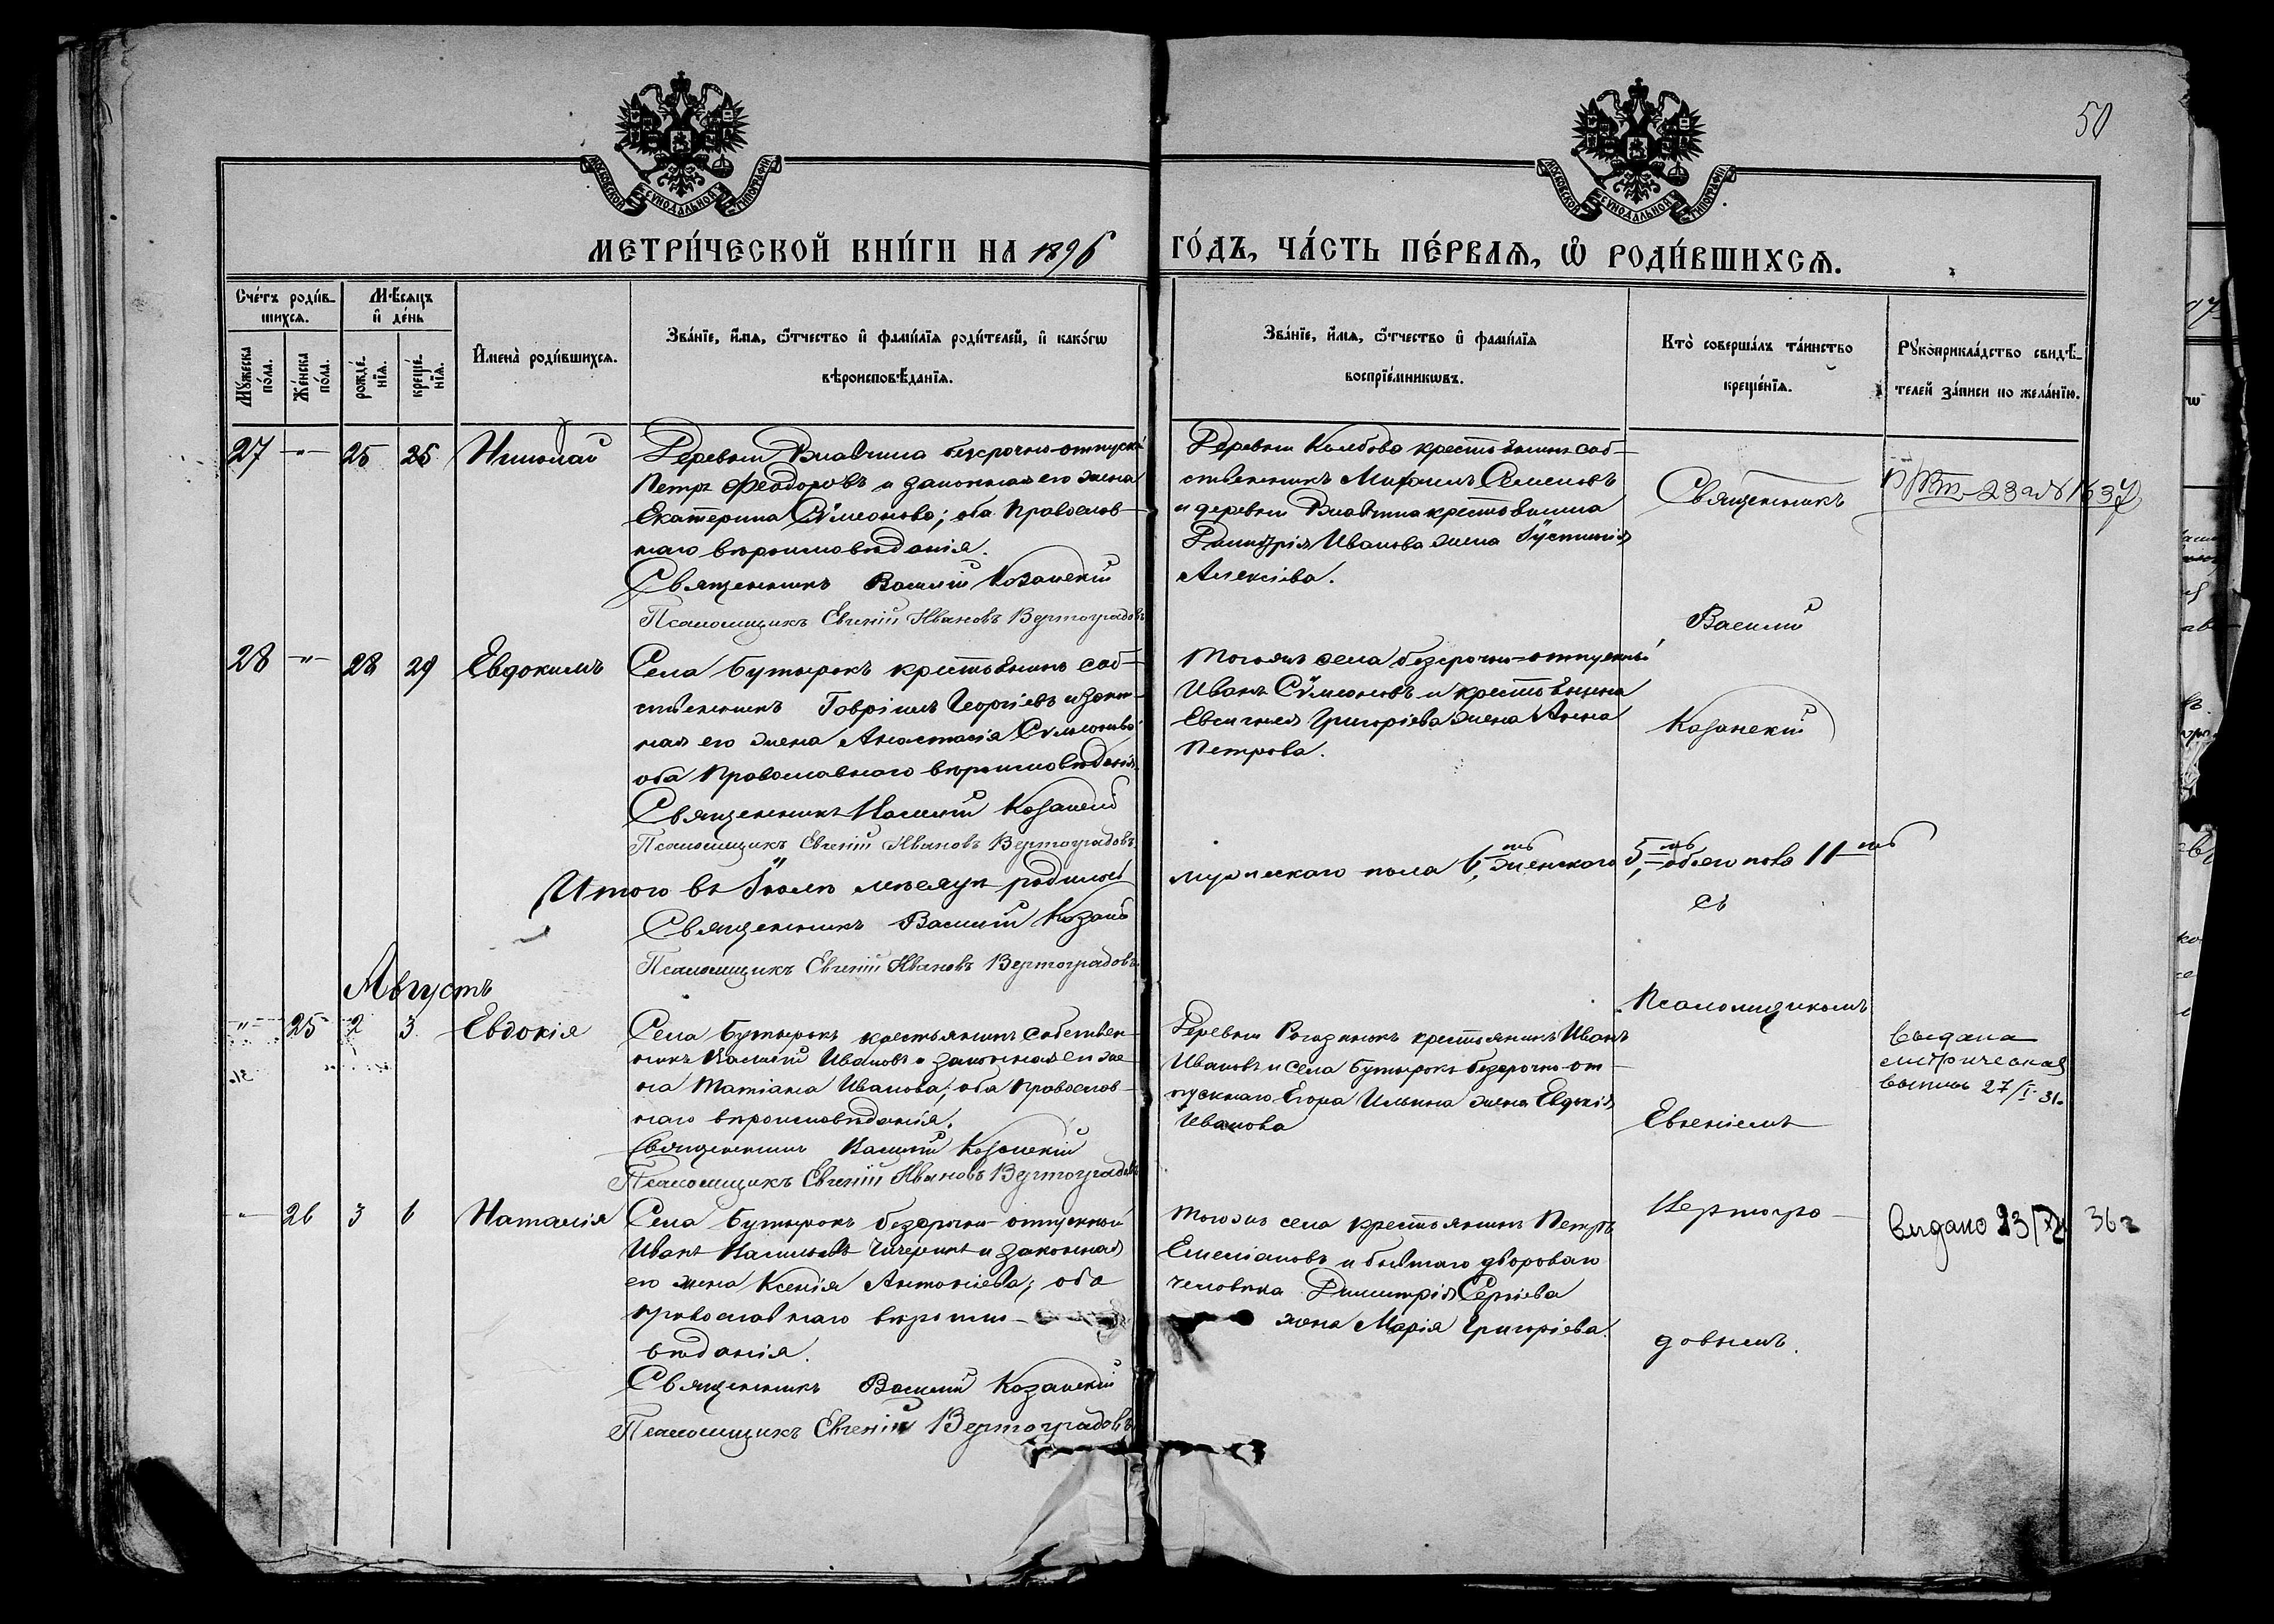 50
МОСКОВСКОЙ СѴНОДАЛЬНОЙ ТИПОГРАФІИ
МОСКОВСКОЙ СѴНОДАЛЬНОЙ ТИПОГРАФІИ
МЕТРИ́ЧЕСКОЙ КНИ́ГИ НА 1896 ГО́ДЪ, ЧА́СТЬ ПЕ́РВАѦ, Ѡ҆ РОДИ́ВШИХСѦ.
Сче́тъ роди́в-
шихсѧ.
Мꙋ́жеска по́ла.
Же́нска по́ла.
Мѣ́сяцъ
и҆ де́нь
рожде́-
нїѧ.
креще́-
нїѧ.
И҆мена̀ роди́вшихсѧ.
Зва́нїе, и҆́мѧ, ѻ҆́тчество и҆ фами́лїѧ роди́телей, и҆ како́гѡ
вѣроисповѣ́данїѧ.
Зва́нїе, и҆́мѧ, ѻ҆́тчество и҆ фами́лїѧ
воспрїе́мникѡвъ.
Кто̀ соверша́лъ та́инство
креще́нїѧ.
Рꙋкоприкла́дство свидѣ́-
телей за́писи по жела́нїю.
27 -"- 25 25 Николай
Деревни безсрочно-отпускн
Петръ Феодоровъ и законная его жена
Екатерина Сѵмеонова; оба Православ-
наго вѣроисповѣданія.
Священникъ Василій Казанскій
Псаломщикъ Евгеній Ивановъ Вертоградовъ
Деревни Колбово крестьянинъ соб-
ственникъ Михаилъ Семеновъ
и деревни крестьянина
Димитрія Иванова жена Іустинія
Алексіева.
Священникъ
Василій
28 -"- 28 29 Евдокимъ
Села Бутырокъ крестьянинъ соб-
ственникъ Гавріилъ Георгіевъ и закон-
ная его жена Анастасія Сѵмеонова
оба Православнаго вѣроисповѣданія.
Священникъ Василій Казанскій
Псаломщикъ Евгеній Ивановъ Вертоградовъ.
Тогожъ села безсрочно-отпускный
Иванъ Сѵмеоновъ и крестьянина
Григоріева жена Анна
Петрова.
Казанскій
Итого въ Іюлѣ мѣсяцѣ родилось
мужескаго пола 6ть, женскаго 5ть, обоего пола 11ть
Священникъ Василій Казанс
Псаломщикъ Евгеній Ивановъ Вертоградовъ.
съ
Августъ
-"- 25 2 3 Евдокія
Села Бутырокъ крестьянинъ собствен-
никъ Василій Ивановъ и законная его же-
на Татіана Иванова; оба Православ-
наго вѣроисповѣданія.
Священникъ Василій Казанскій
Псаломщикъ Евгеній Ивановъ Вертоградовъ
Деревни крестьянинъ Иванъ
Ивановъ и села Бутырокъ безсрочно-от-
пускнаго Егора Ильина жена Евдокія
Иванова
Псаломщикомъ
Евгеніемъ
выдана
метрическая
выпись 27/I-31.
-"- 26 3 6 Наталія
Села Бутырокъ безсрочно-отпускной
Иванъ Васильевъ Чичеринъ и законная
его жена Ксенія Антоніева; оба
православнаго вѣроиспо-
вѣданія.
Священникъ Василій Казанскій
Псаломщикъ Евгеній Вертоградовъ
Тогожъ села крестьянинъ Петръ
Емеліановъ и бывшаго двороваго
человѣка Димитрія Сергіева
жена Марія Григоріева.
Вертогра-
довымъ.
выдано 23 36 г